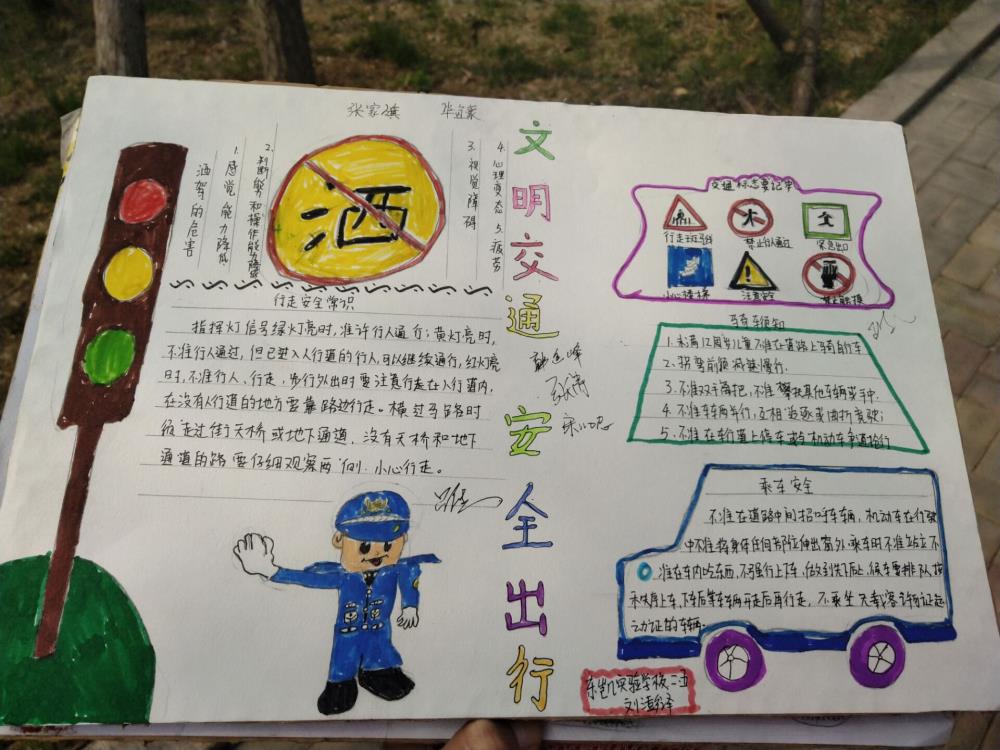 张家旗
酒驾的危害
1.感觉能力降低
2.判断能力和操作能力降低
酒
3.视觉障碍
4.心理变态
5.疲劳
行走安全常识
指挥灯信号绿灯亮时,准许行人通行;黄灯亮时,
不准行人通过,但已进入人行道的行人,可以继续通行,红灯亮
时,不准行人、行走,步行外出时要注意行走在人行道内,
在没有人行道的地方要靠路边行走。横过马路时
须走过街天桥或地下通道,没有天桥和地下
通道的路要仔细观察两侧,小心行走。
文明交通安全出行
交通标志要记牢
行走斑马线
禁止行人通过
紧急出口
注意安全
禁止触摸
骑车须知
1.未满12周岁儿童不准在道路上骑自行车
2.拐弯前须减速慢行.
3.不准双手离把,不准攀扶其他车辆或手中.
4.不准车辆并行,互相追逐或曲折竞驶;
5.不准在车行道上停车或与机动车争道抢行
乘车安全
不准在道路中间招呼车辆,机动车在行驶
中不准将身体任何部位伸出窗外.乘车时不准站立不
准在车内吃东西,不强行上下车,做到先下后上,候车要排队,按
秩序上车,下车后等车辆开走后再行走,不乘坐
的车辆。
东凯实验学校二五